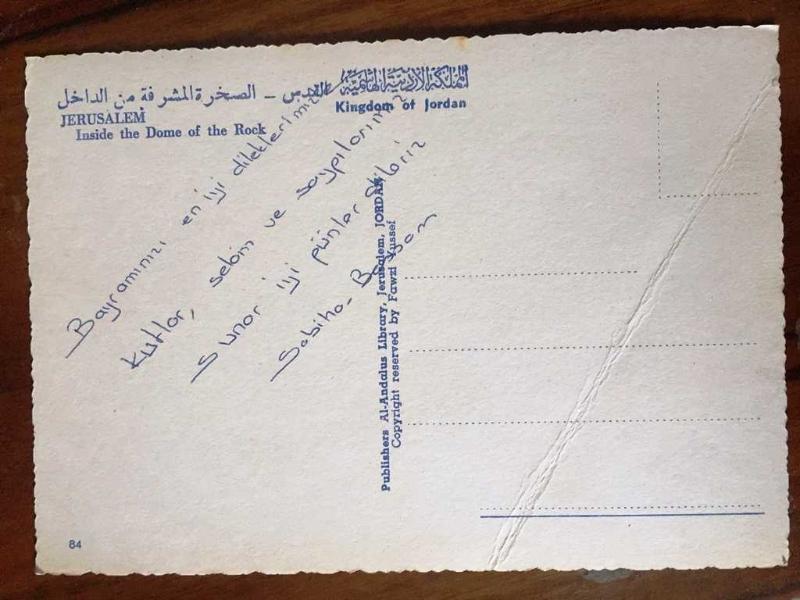 القدس - الصخرة المشرفة من الداخل
المملكة الأردنية الهاشمية
JERUSALEM
Inside the Dome of the Rock
Kingdom of Jordan
Bayramınızı en iyi dileklerimizle
kutlar, selam ve saygılarımızı
sunar iyi günler dileriz
Sabiha-
Publishers Al-Andalus Library, Jerusalem, JORDAN
Copyright reserved by Fawzi Yussef
84